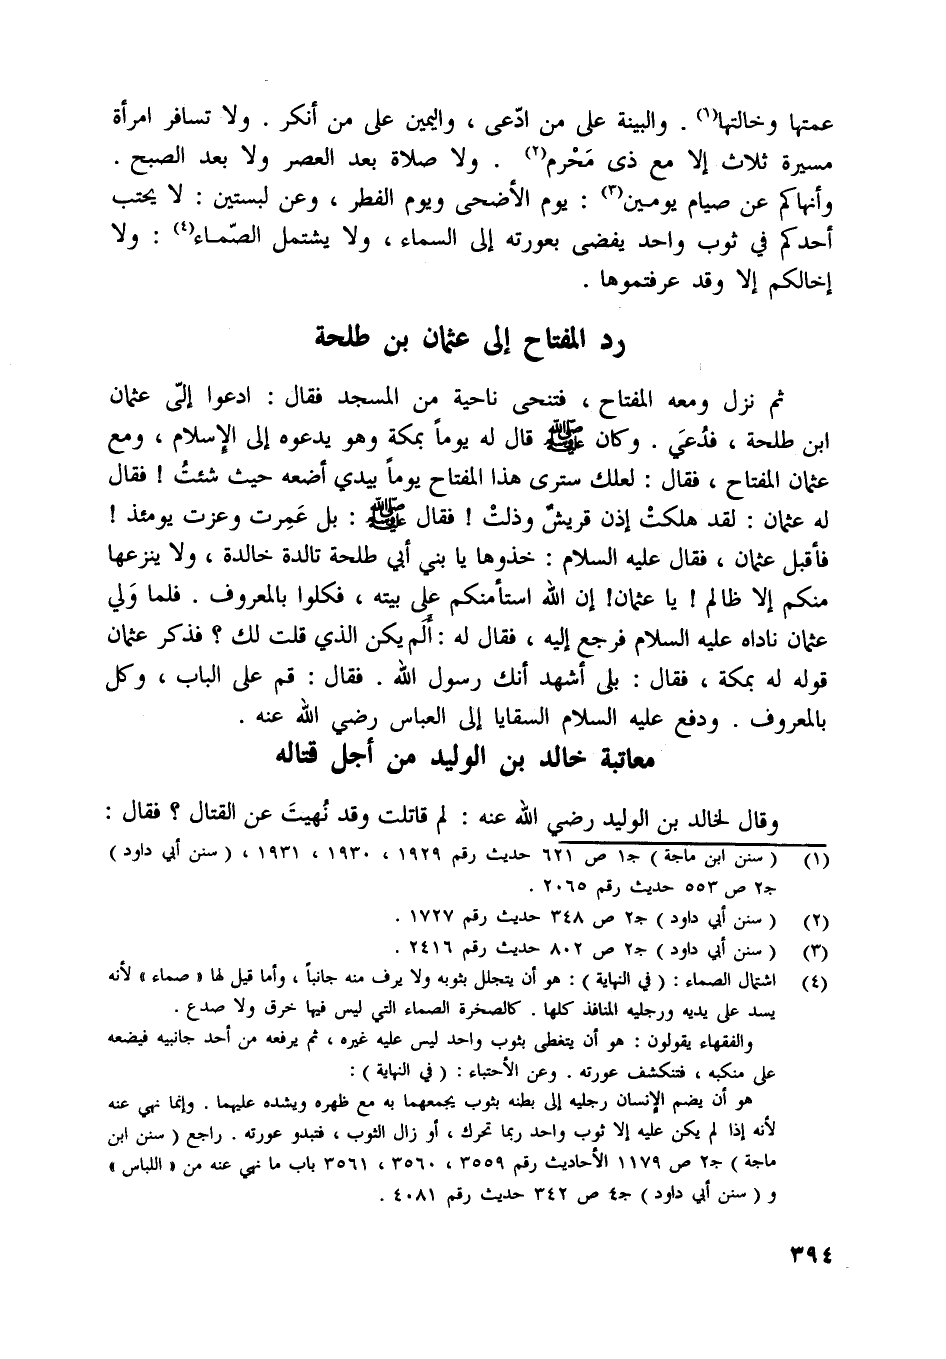 عمتها وخالتها(١) . والبينة على من ادّعى ، واليمين على من أنكر . ولا تسافر امرأة
مسيرة ثلاث إلا مع ذى مَحْرم(٢) . ولا صلاة بعد العصر ولا بعد الصبح .
وأنهاكم عن صيام يومين(٣) : يوم الأضحى ويوم الفطر ، وعن لبستين : لا يحتب
أحدكم في ثوب واحد يفضى بعورته إلى السماء ، ولا يشتمل الصّماء(٤) : ولا
إخالكم إلا وقد عرفتموها .
رد المفتاح إلى عثمان بن طلحة
ثم نزل ومعه المفتاح ، فتنحى ناحية من المسجد فقال : ادعوا إليّ عثمان
ابن طلحة ، فدُعيَ . وكان ﷺ قال له يوماً بمكة وهو يدعوه إلى الإسلام ، ومع
عثمان المفتاح ، فقال : لعلك سترى هذا المفتاح يوماً بيدي أضعه حيث شئتُ ! فقال
له عثمان : لقد هلكتْ إذن قريشٌ وذلتْ ! فقال ﷺ : بل عَمِرت وعزت يومئذ !
فأقبل عثمان ، فقال عليه السلام : خذوها يا بني أبي طلحة تالدة خالدة ، ولا ينزعها
منكم إلا ظالم ! يا عثمان! إن الله استأمنكم على بيته ، فكلوا بالمعروف . فلما وَلي
عثمان ناداه عليه السلام فرجع إليه ، فقال له : ألَم يكن الذي قلت لك ؟ فذكر عثمان
قوله له بمكة ، فقال : بلى أشهد أنك رسول الله . فقال : قم على الباب ، وكل
بالمعروف . ودفع عليه السلام السقايا إلى العباس رضي الله عنه .
معاتبة خالد بن الوليد من أجل قتاله
وقال لخالد بن الوليد رضي الله عنه : لم قاتلت وقد نُهيتَ عن القتال ؟ فقال :
(١) ( سنن ابن ماجة ) جـ١ ص ٦٢١ حديث رقم ١٩٢٩ ، ١٩٣٠ ، ١٩٣١ ، ( سنن أبي داود )
جـ٢ ص ٥٥٣ حديث رقم ٢٠٦٥ .
(٢) ( سنن أبي داود ) جـ٢ ص ٣٤٨ حديث رقم ١٧٢٧ .
(٣) ( سنن أبي داود ) جـ٢ ص ٨٠٢ حديث رقم ٢٤١٦ .
(٤) اشتمال الصماء : ( في النهاية ) : هو أن يتجلل بثوبه ولا يرف منه جانباً ، وأما قيل لها « صماء » لأنه
يسد على يديه ورجليه المنافذ كلها . كالصخرة الصماء التي ليس فيها خرق ولا صدع .
والفقهاء يقولون : هو أن يتغطى بثوب واحد ليس عليه غيره ، ثم يرفعه من أحد جانبيه فيضعه
على منكبه ، فتنكشف عورته . وعن الأحتباء : ( في النهاية ) :
هو أن يضم الإنسان رجليه إلى بطنه بثوب يجمعهما به مع ظهره ويشده عليهما . وإنما نهي عنه
لأنه إذا لم يكن عليه إلا ثوب واحد ربما تحرك ، أو زال الثوب ، فتبدو عورته . راجع ( سنن ابن
ماجة ) جـ٢ ص ١١٧٩ الأحاديث رقم ٣٥٥٩ ، ٣٥٦٠ ، ٣٥٦١ باب ما نهي عنه من « اللباس »
و ( سنن أبي داود ) جـ٤ ص ٣٤٢ حديث رقم ٤٠٨١ .
٣٩٤